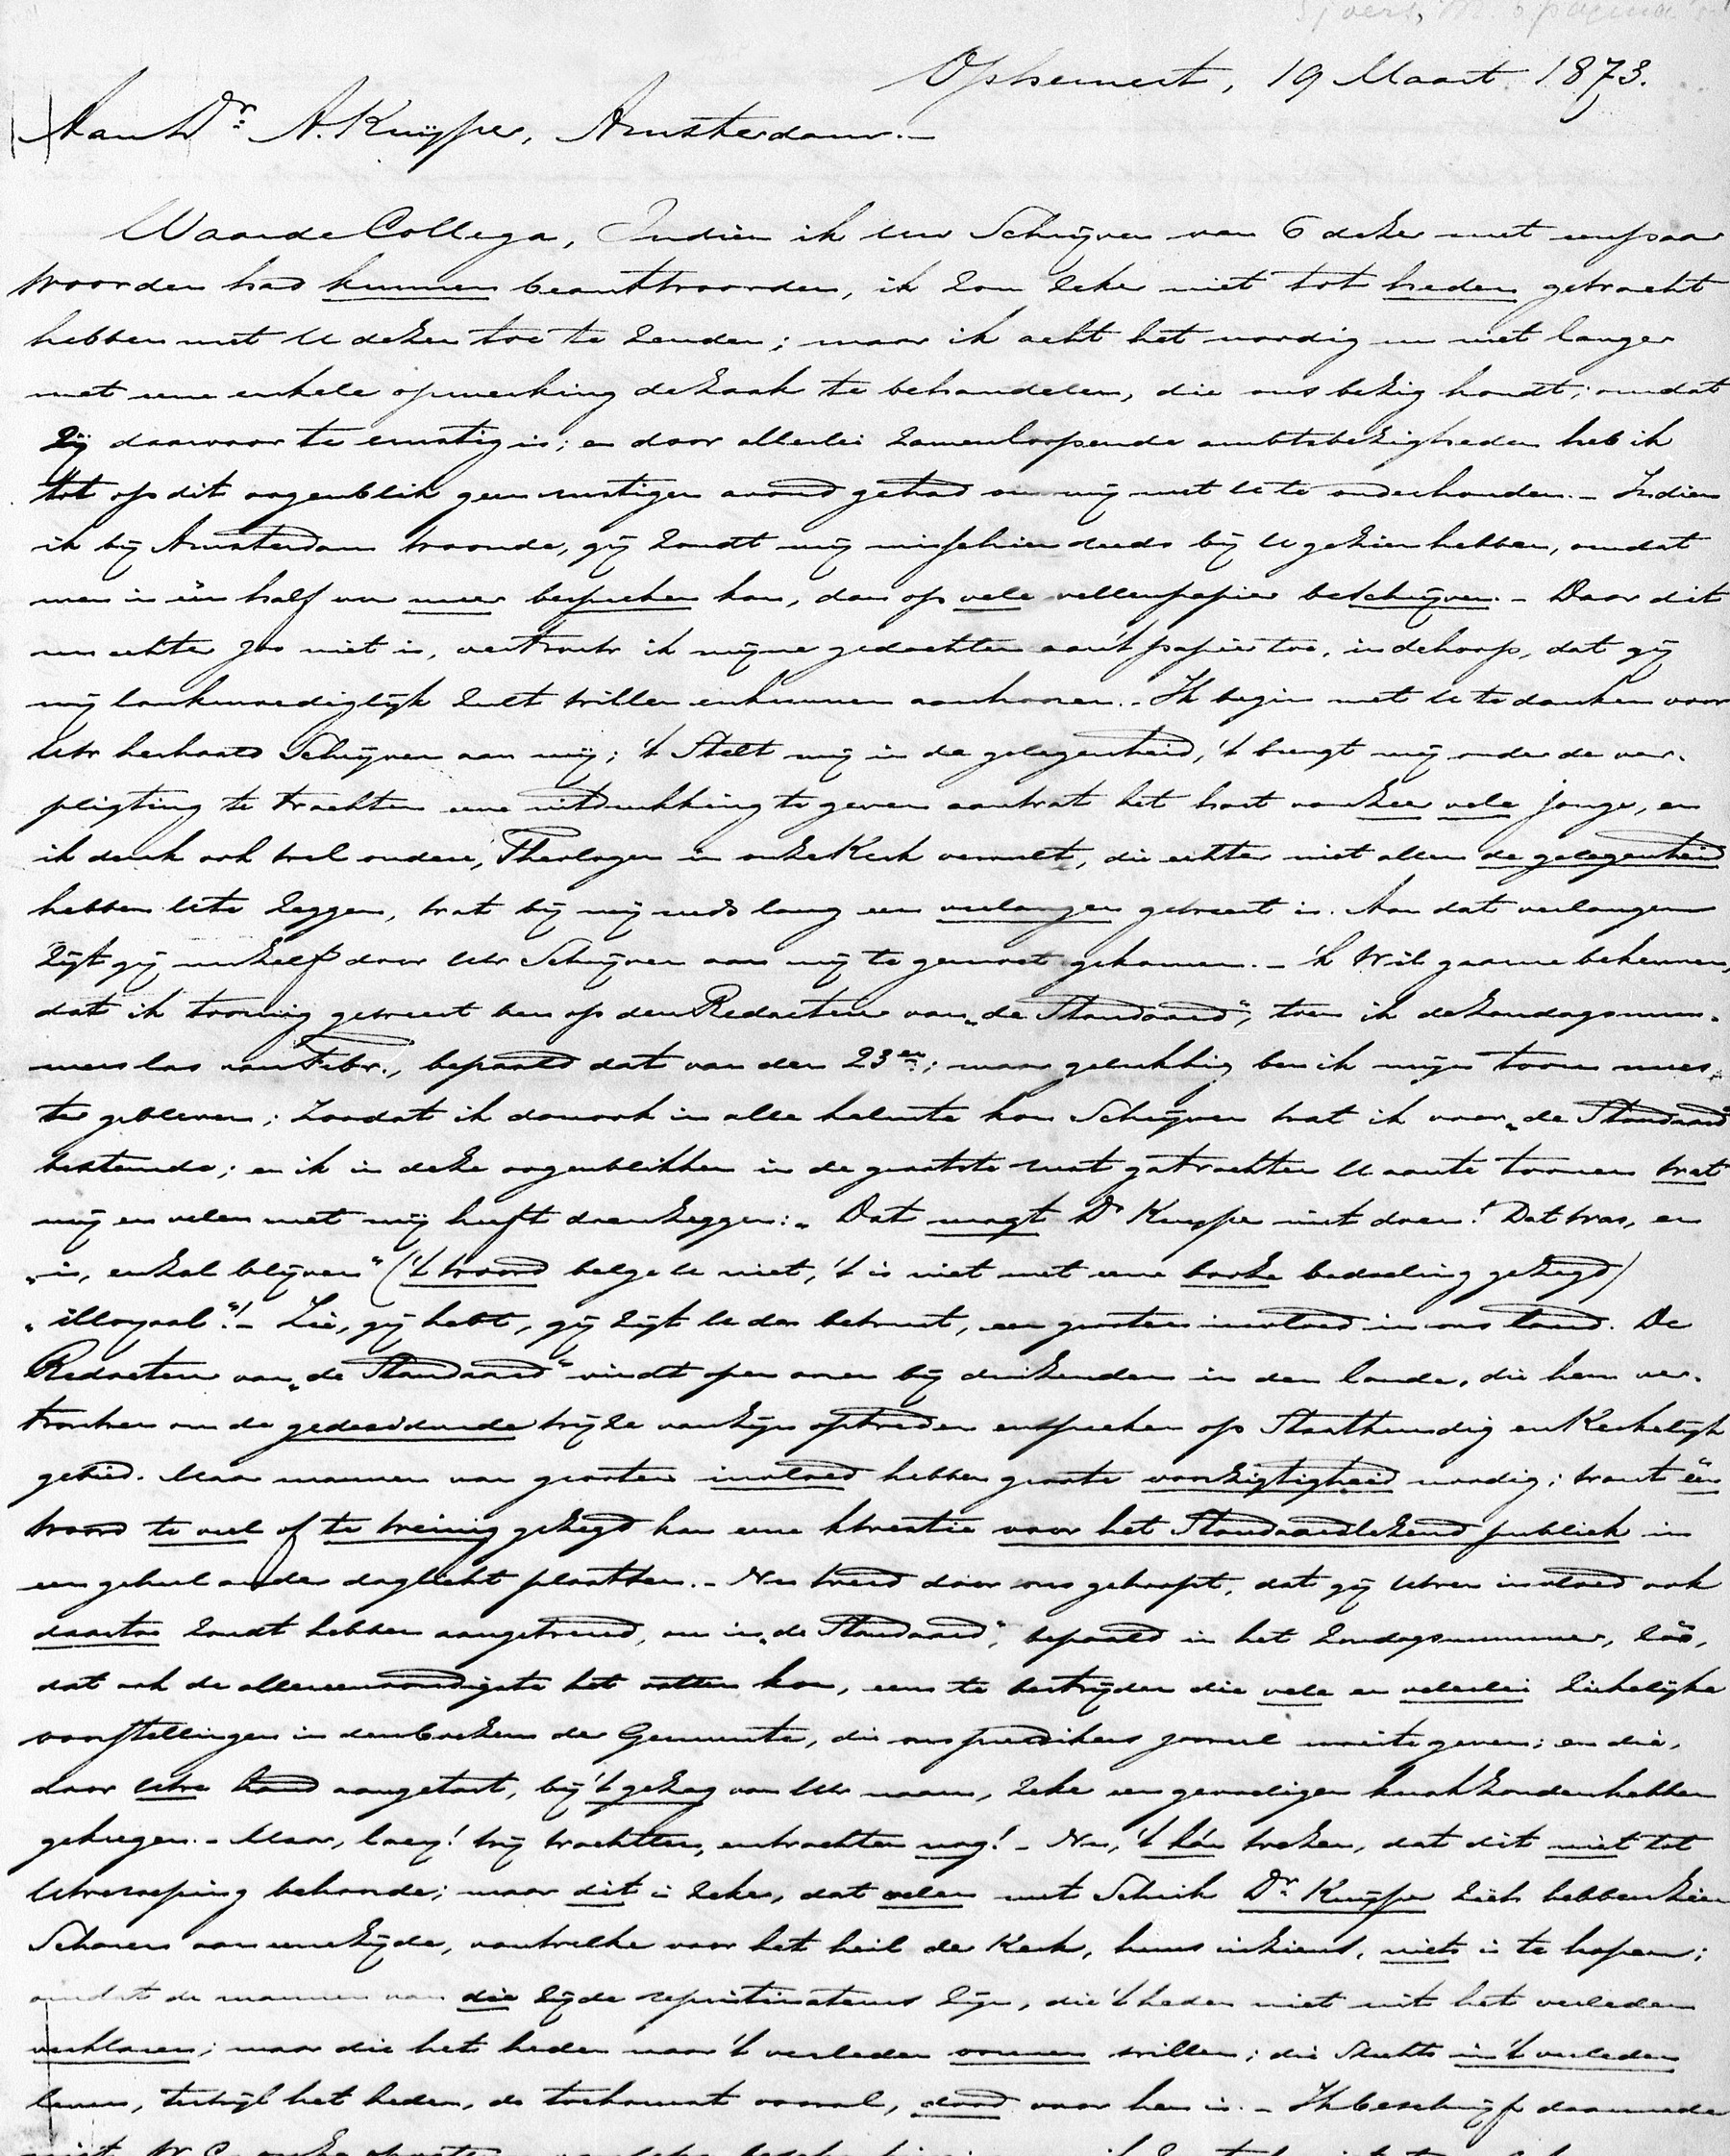 Ophemert, 19 Maart 1873.
Aan Dr. A. Kuyper, Amsterdam. –
Waarde Collega, Indien ik Uw Schrijven van 6 dezer met een paar
woorden had kunnen beantwoorden, ik zou zeker niet tot heden gewacht
hebben met U dezen toe te zenden; maar ik acht het noodig nu niet langer
met eene enkele opmerking de zaak te behandelen, die ons bezig houdt; omdat
zij daarvoor te ernstig is; en door allerlei zamenloopende ambtsbezigheden heb ik
tot op dit oogenblik geen rustigen avond gehad om mij met U te onderhouden. – Indien
ik bij Amsterdam woonde, gij zoudt mij misschien reeds bij U gezien hebben, omdat
men in één half uur meer bespreken kan, dan op vele vellen papier beschrijven. – Daar dit
nu echter zoo niet is, vertrouw ik mijne gedachten aan 't papier toe, in de hoop, dat gij
mij lankmoediglijk zult willen en kunnen aanhooren. – Ik begin met U te danken voor
Uw herhaald Schrijven aan mij; 't Stelt mij in de gelegenheid, 't brengt mij onder de ver-
pligting te trachten eene uitdrukking te geven aan wat het hart van zeer vele jonge, en
ik denk ook wel oudere, Theologen in onze Kerk vervult, die echter niet allen de gelegenheid
hebben U te zeggen, wat bij mij reeds lang een verlangen geweest is. Aan dat verlangen
zijt gij nu zelf door Uw Schrijven aan mij te gemoet gekomen. – 'k Wil gaarne bekennen,
dat ik toornig geweest ben op den Redacteur van „de Standaard", toen ik de Zondagsnum-
mers las van Febr., bepaald dat van den 23en; maar gelukkig ben ik mijn toorn mees-
ter gebleven; zoodat ik daarna in alle kalmte kon Schrijven wat ik voor „de Standaard"
bestemde; en ik in deze oogenblikken in de grootste rust ga trachten U aan te toonen wat
mij en velen met mij heeft doen zeggen: „Dat magt Dr Kuyper niet doen! Dat was, en
„is, en zal blijven" ('t woord belge U niet, 't is niet met eene booze bedoeling gezegd)
„illoyaal"! – Zie, gij hebt, gij zijt U des bewust, een grooten invloed in ons land. De
Redacteur van „de Standaard" vindt open ooren bij duizenden in den lande, die hem ver-
trouwen om de gedecideerde wijze van zijn optreden en spreken op Staatkundig en Kerkelijk
gebied. Maar mannen van grooten invloed hebben groote voorzigtigheid noodig; want één
woord te veel of te weinig gezegd kan eene kwestie voor het Standaardlezend publiek in
een geheel ander daglicht plaatsen. – Nu werd door ons gehoopt, dat gij Uwen invloed ook
daartoe zoudt hebben aangewend, om in „de Standaard", bepaald in het Zondagsnummer, zóó,
dat ook de allereenvoudigste het vatten kon, eens te bestrijden die vele en velerlei ziekelijke
voorstellingen in den boezem der Gemeente, die ons predikers zooveel moeite geven; en die,
door Uwe hand aangetast, bij 't gezag van Uw naam, zeker een gevoeligen knak zouden hebben
gekregen. – Maar, laas! wij wachtten, en wachten nog! – Nu, 't kán wezen, dat dit niet tot
Uwe roeping behoorde; maar dit is zeker, dat velen met Schrik Dr. Kuyper zich hebben zien
Scharen aan eene zijde, van welke voor het heil der Kerk, huns inziens, niets is te hopen;
omdat de mannen van die zijde repristinateurs zijn, die 't heden niet uit het verleden
verklaren; maar die het heden naar 't verleden vormen willen; die slechts in 't verleden
leven, terwijl het heden, de toekomst vooral, dood voor hen is. – Ik beschrijf daarmede